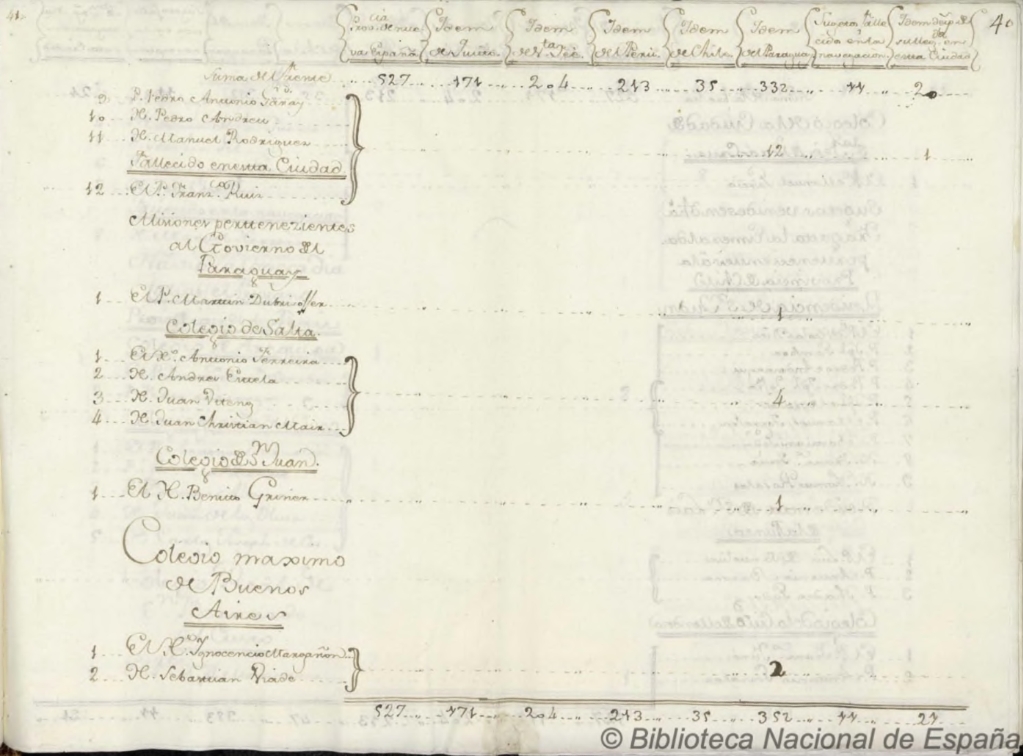 41. 40
Prov.cia de nue
va España
Idem
de Quito.
Idem
de S.ta Fee.
Idem
del Perù.
Idem
de Chile
Idem
del Paragua
navegacion
Idem
en esta Ciudad
Suma del frente 527 171 204 213 35 332 11 20
9 P. Pedro Antonio Garay
10 H. Pedro Andreu
11 H. Manuel Rodriguez
Fallecido en esta Ciudad 12 1
12 El P. Fran.co Ruiz
Misiones pertenezientes
al Govierno del
Paraguay
1 El P. Martin 1
Colegio de Salta.
1 El H.o Antonio Ferreira
2 H. Andres
3 H. Juan 4
4 H. Juan Christian Mair
Colegio de S.n Juan.
1 El H. Benito 1
Colegio maximo
de Buenos
Aires
1 El H. Ygnocencio Margañon
2 H. Sebastian 2
527 171 204 213 35 352 11 21
© Biblioteca Nacional de España